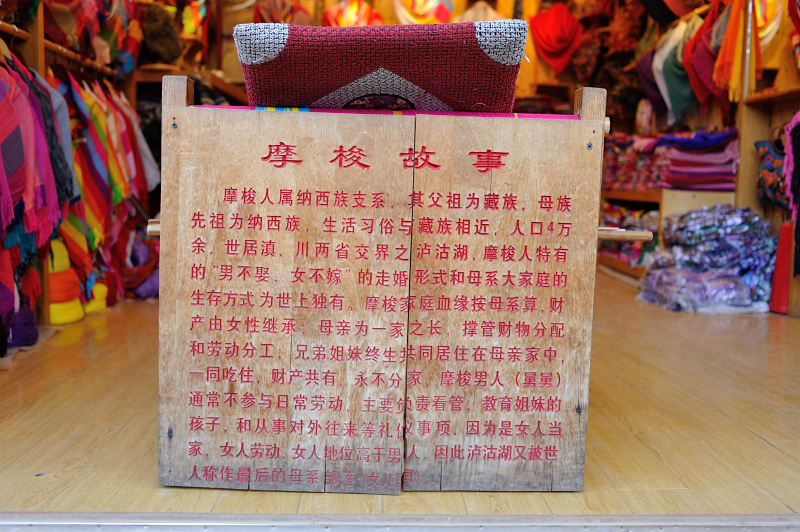 摩梭故事
摩梭人属纳西族支系，其父祖为藏族，母族
先祖为纳西族，生活习俗与藏族相近，人口4万
余，世居滇、川两省交界之泸沽湖，摩梭人特有
的“男不娶，女不嫁”的走婚形式和母系大家庭的
生存方式为世上独有。摩梭家庭血缘按母系算，财
产由女性继承；母亲为一家之长，撑管财物分配
和劳动分工；兄弟姐妹终生共同居住在母亲家中，
一同吃住，财产共有，永不分家。摩梭男人（舅舅）
通常不参与日常劳动，主要负责看管、教育姐妹的
孩子，和从事对外往来等礼仪事项、因为是女人当
家，女人劳动，女人地位高于男人，因此泸沽湖又被世
人称作最后的母系部落（女儿国）